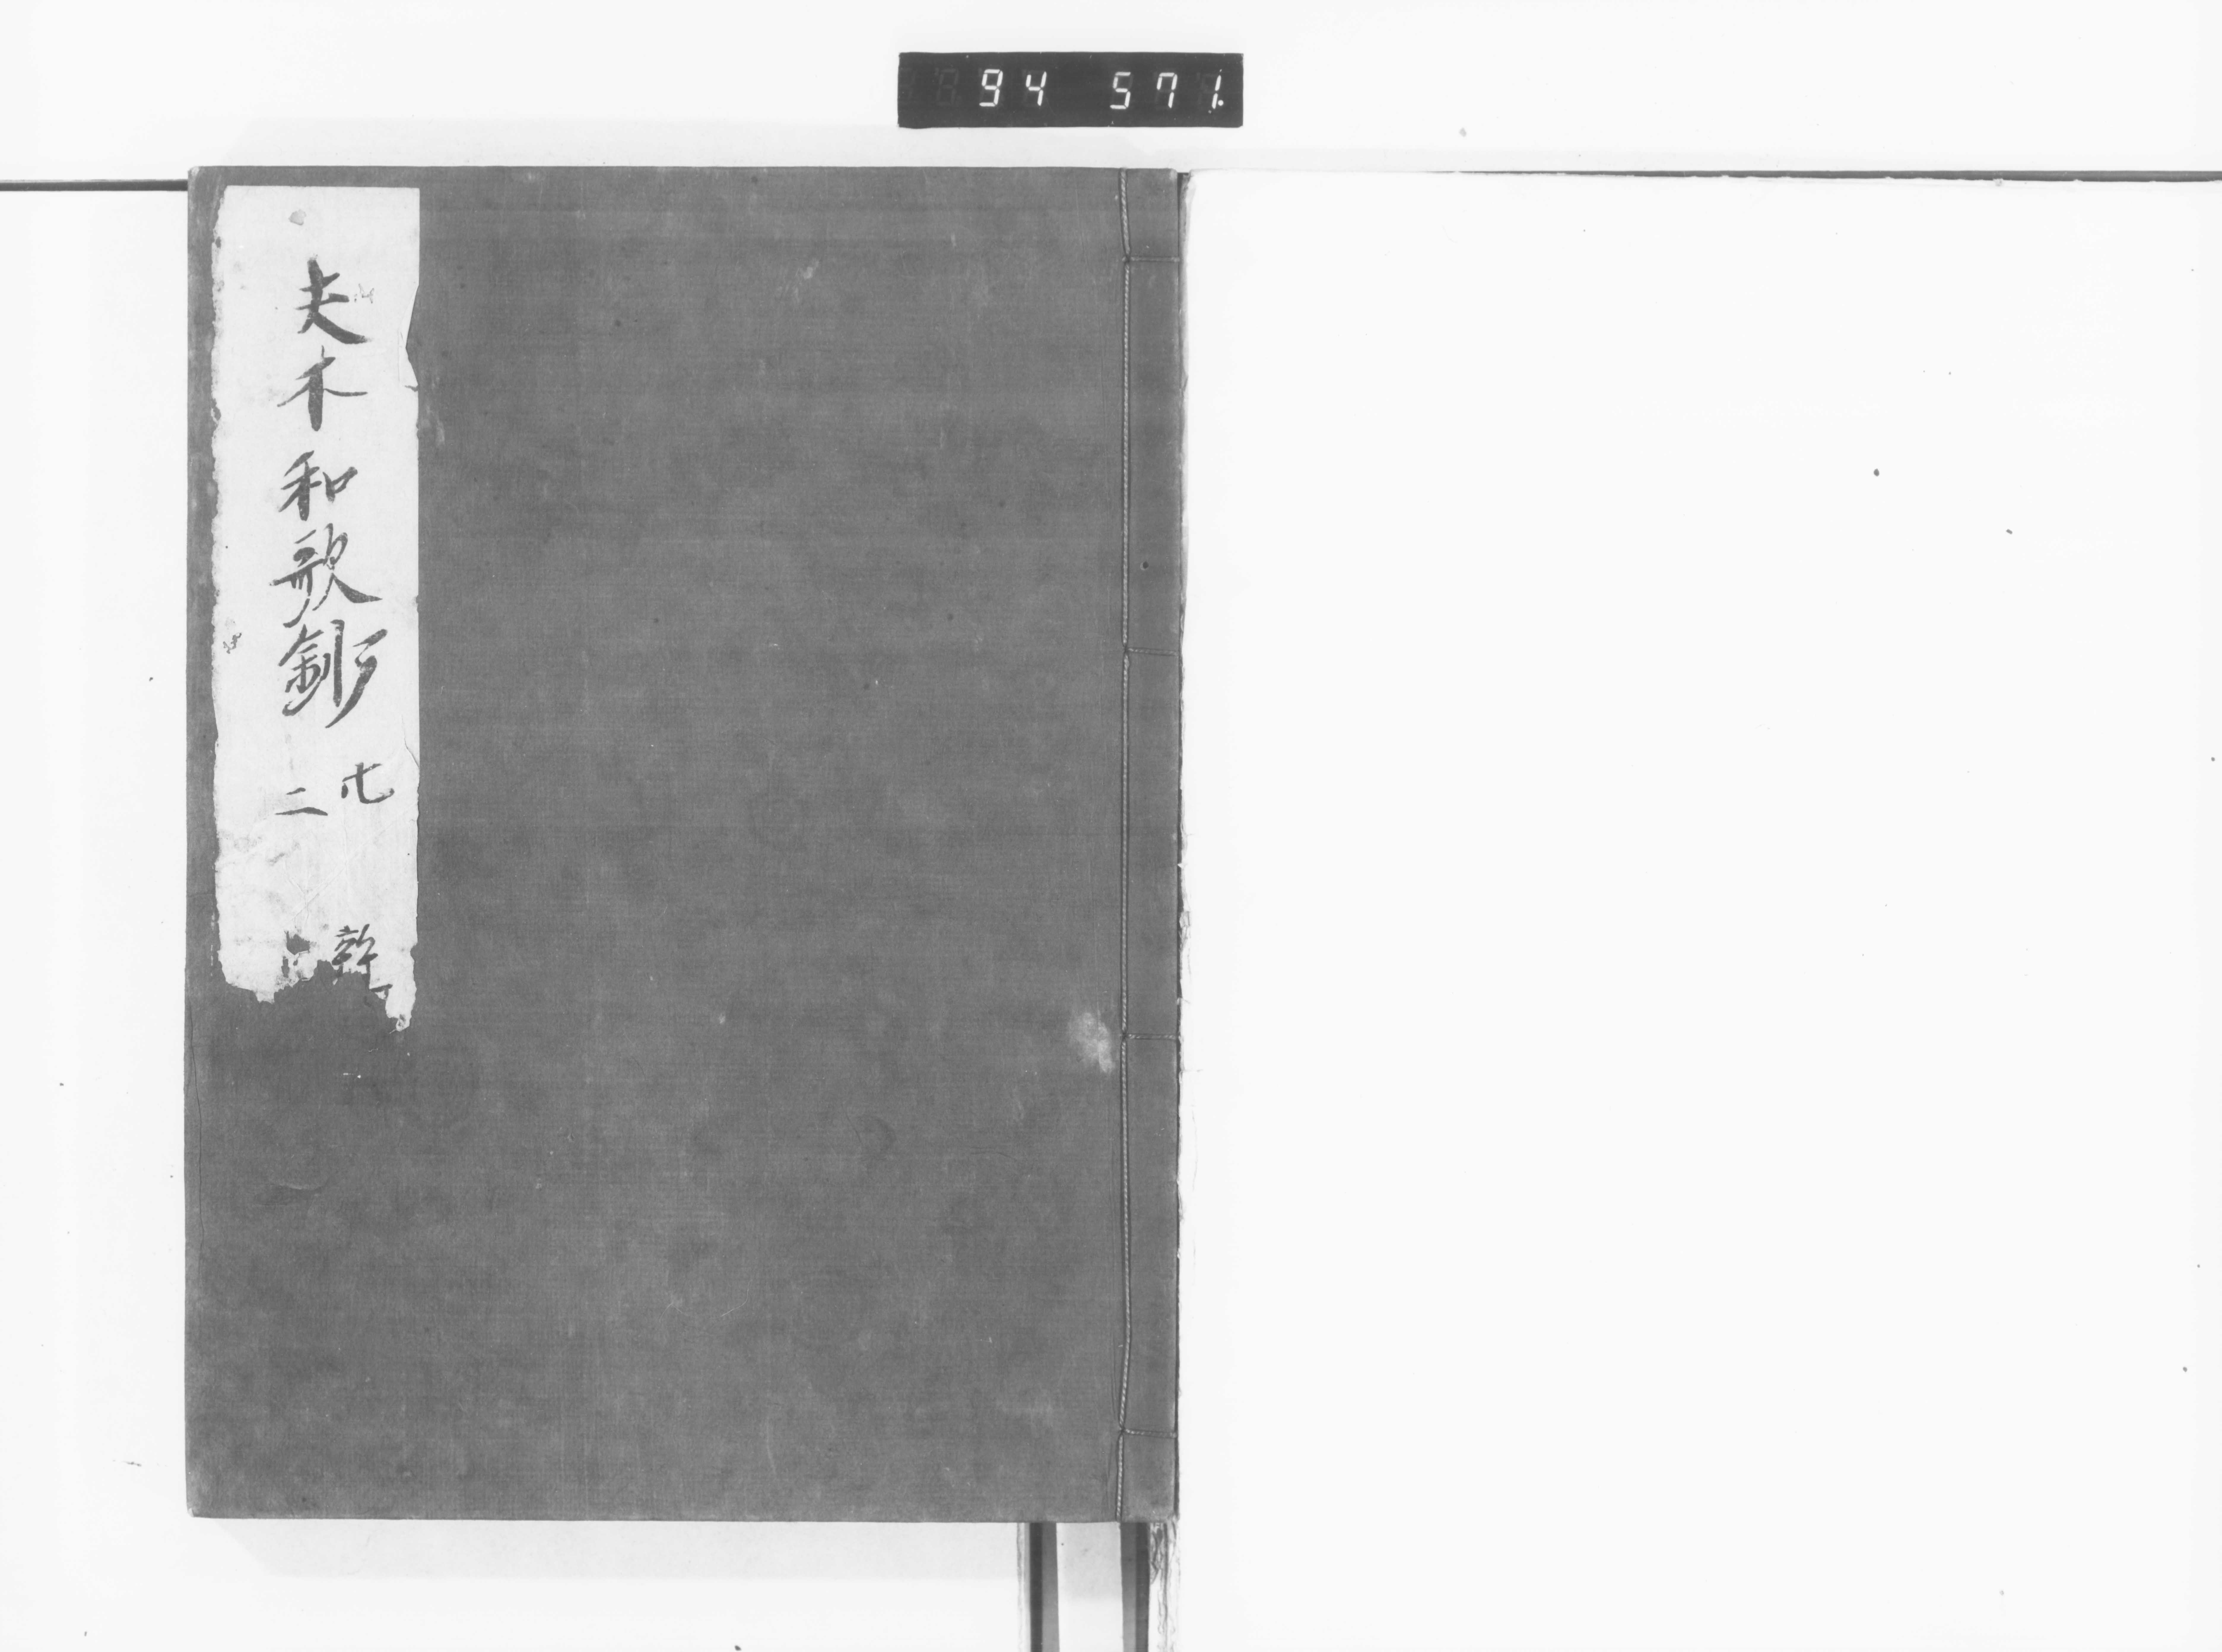 94 571.
夫木和歌鈔
廿
二
雜